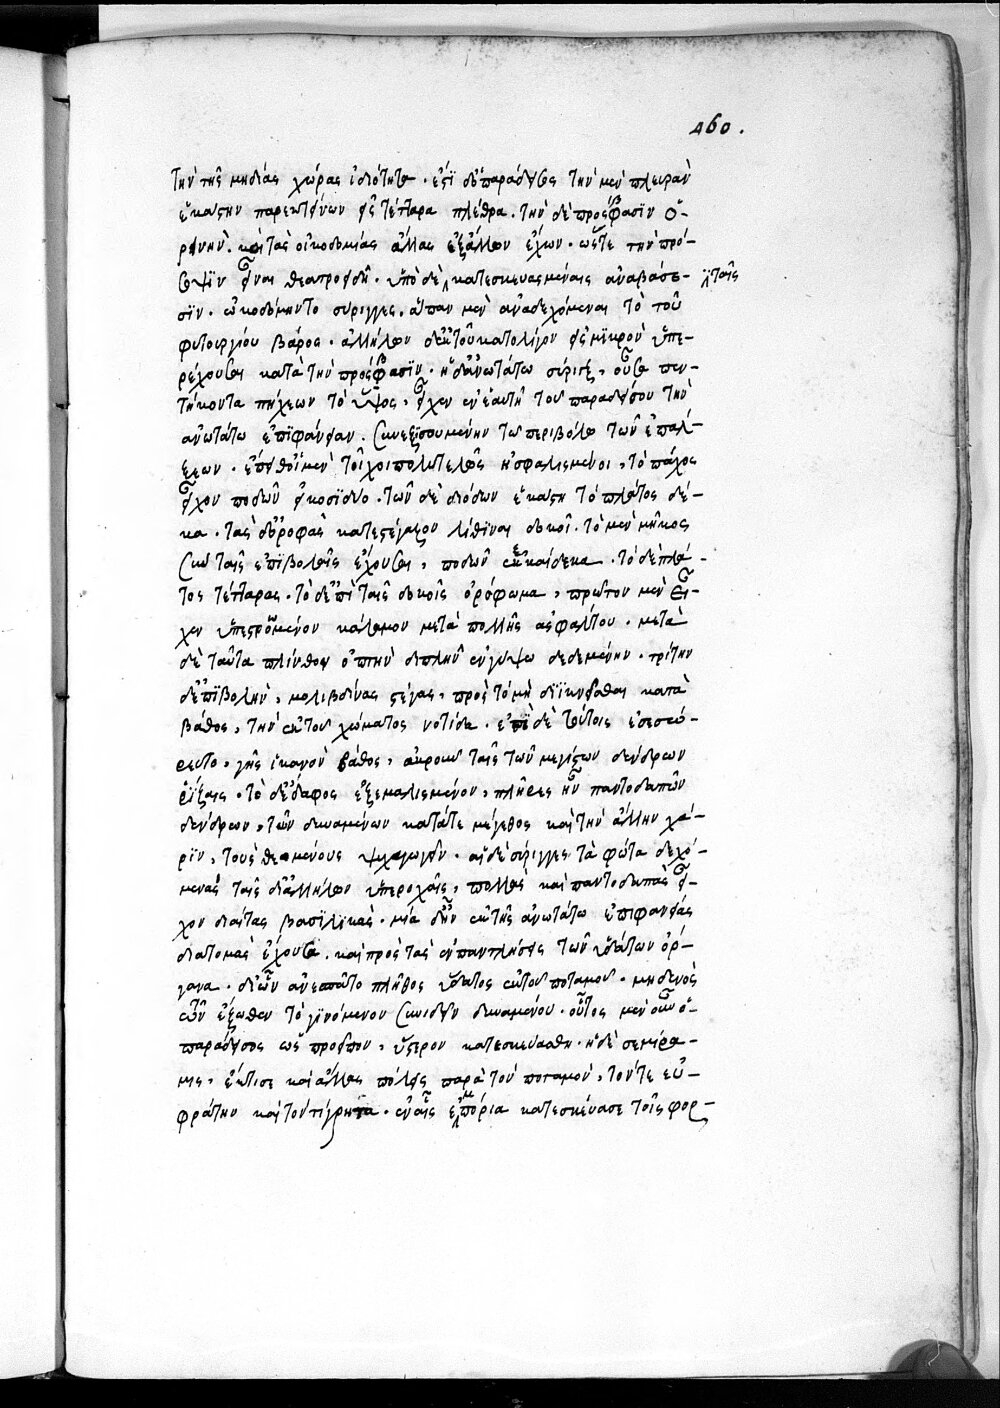 460.
τὴν τῆς μηδίας χώρας ἰδιότητα. ἐστὶ δ' ὁ παράδεισος τὴν μὲν πλευρὰν
ἑκάστην παρεκτείνων εἰς τέτταρα πλέθρα. τὴν δὲ πρόσβασιν ὀ-
ρεινὴν. καὶ τὰς οἰκοδομίας ἄλλας ἐξ ἄλλων ἔχων. ὥστε τὴν πρό-
σοψιν εἶναι θεατροειδῆ. ὑπὸ δὲ κατεσκευασμέναις ἀναβάσε- ταῖς
σιν. ὠκοδόμηντο σύριγγες. ἅπαν μὲν ἀναδεχόμεναι τὸ τοῦ
φυτουργίου βάρος. ἀλλήλων δ' ἐκ τοῦ κατ' ὀλίγον εἰς μικρὸν ὑπε-
ρέχουσαι κατὰ τὴν πρόσβασιν. ἡ δ' ἀνωτάτω σύριγξ, οὖσα πεν-
τήκοντα πήχεων τὸ ὕψος, εἶχεν ἐν ἑαυτῆ τοῦ παραδείσου τὴν
ἀνωτάτω ἐπιφάνειαν. συνεξισουμένην τῶ περιβόλω τῶν ἐπάλ-
ξεων. ἔπειθ' οἱ μὲν τοῖχοι πολυτελῶς ἠσφαλισμένοι, τὸ πάχος
εἶχον ποδῶν εἴκοσι δύο. τῶν δὲ διόδων ἑκάστη τὸ πλάτος δέ-
κα. τὰς δ' ὀροφὰς κατεστέγαζον λίθιναι δοκοὶ. τὸ μὲν μῆκος
σὺν ταῖς ἐπιβολαῖς ἔχουσαι, ποδῶν ἑκκαίδεκα. τὸ δὲ πλά-
τος τέτταρας. τὸ δ' ἐπὶ ταῖς δοκοῖς ὀρόφωμα, πρῶτον μὲν εἶ-
χεν ὑπεστρωμένον κάλαμον μετὰ πολλῆς ἀσφάλτου. μετὰ
δὲ ταῦτα πλίνθον ὀπτὴν διπλῆν ἐν γύψω δεδεμένην. τρίτην
δ' ἐπιβολὴν, μολιβδίνας στέγας, πρὸς τὸ μὴ διϊκνεῖσθαι κατὰ
βάθος, τὴν ἐκ τοῦ χώματος νοτίδα. ἐπὶ δὲ τούτοις ἐσεσώ-
ρευτο, γῆς ἱκανὸν βάθος, ἀρκοῦν ταῖς τῶν μεγίστων δένδρων
ῥίζαις. τὸ δ' ἔδαφος ἐξωμαλισμένον, πλῆρες ἦν παντοδαπῶν
δένδρων, τῶν δυναμένων κατά τε μέγεθος καὶ τὴν ἄλλην χά-
ριν, τοὺς θεωμένους ψυχαγωγεῖν. αἱ δὲ σύριγγες τὰ φῶτα δεχό-
μεναι ταῖς δι' ἀλλήλων ὑπεροχαῖς, πολλὰς καὶ παντοδαπὰς εἶ-
χον διαίτας βασιλικὰς. μία δ' ἦν ἐκ τῆς ἀνωτάτω ἐπιφανείας
διατομὰς ἔχουσα. καὶ πρὸς τὰς ἐπαντλήσεις τῶν ὑδάτων ὄρ-
γανα. δι' ὧν ἀνεσπᾶτο πλῆθος ὕδατος ἐκ τοῦ ποταμοῦ. μηδενὸς
τῶν ἔξωθεν τὸ γινόμενον συνιδεῖν δυναμένου. οὗτος μὲν οὖν ὁ
παράδεισος ὡς προεῖπον, ὕστερον κατεσκευάσθη. ἡ δὲ σεμίρα-
μις, ἔκτισε καὶ ἄλλας πόλεις παρὰ τὸν ποταμὸν, τόν τε εὐ-
φράτην καὶ τὸν τίγρητα. ἐν αἷς ἐμπόρια κατεσκεύασε τοῖς φορ-